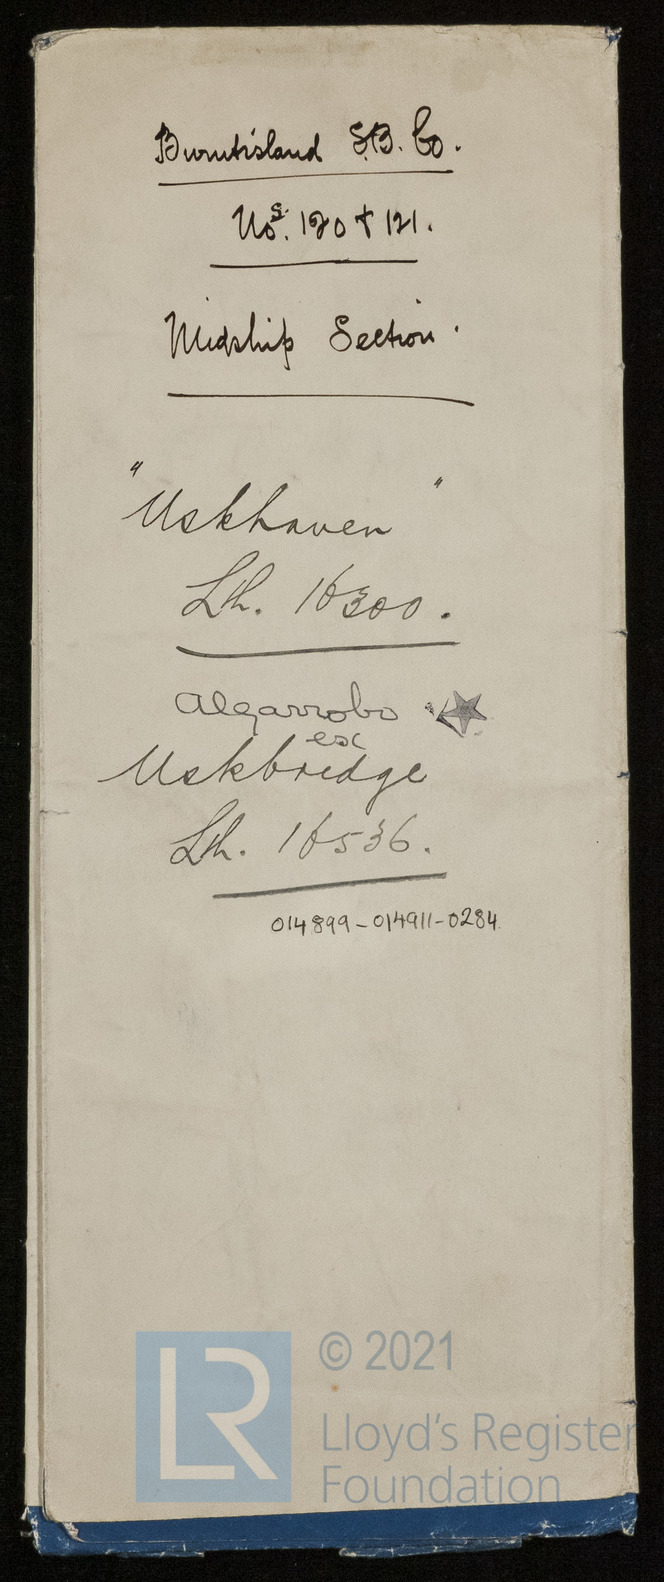 Burntisland S.B. Co.
Nos. 120 & 121.
Midship Section.
"Uskhaven"
Lh. 16300.
Algarrobo
ex
Uskbridge
Lh. 16536.
014899-014911-0284
LR
© 2021
Lloyd's Register
Foundation